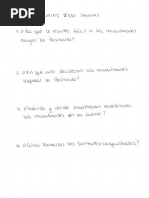 1. ¿Por qué le resultó fácil a los musulmanes
la Península?
2. ¿En qué año decidieron los musulmanes
la Península?
3. ¿Cuándo y dónde encontraron resistencia los
musulmanes en su avance?
4. ¿Cómo llamaron los territorios conquistados?